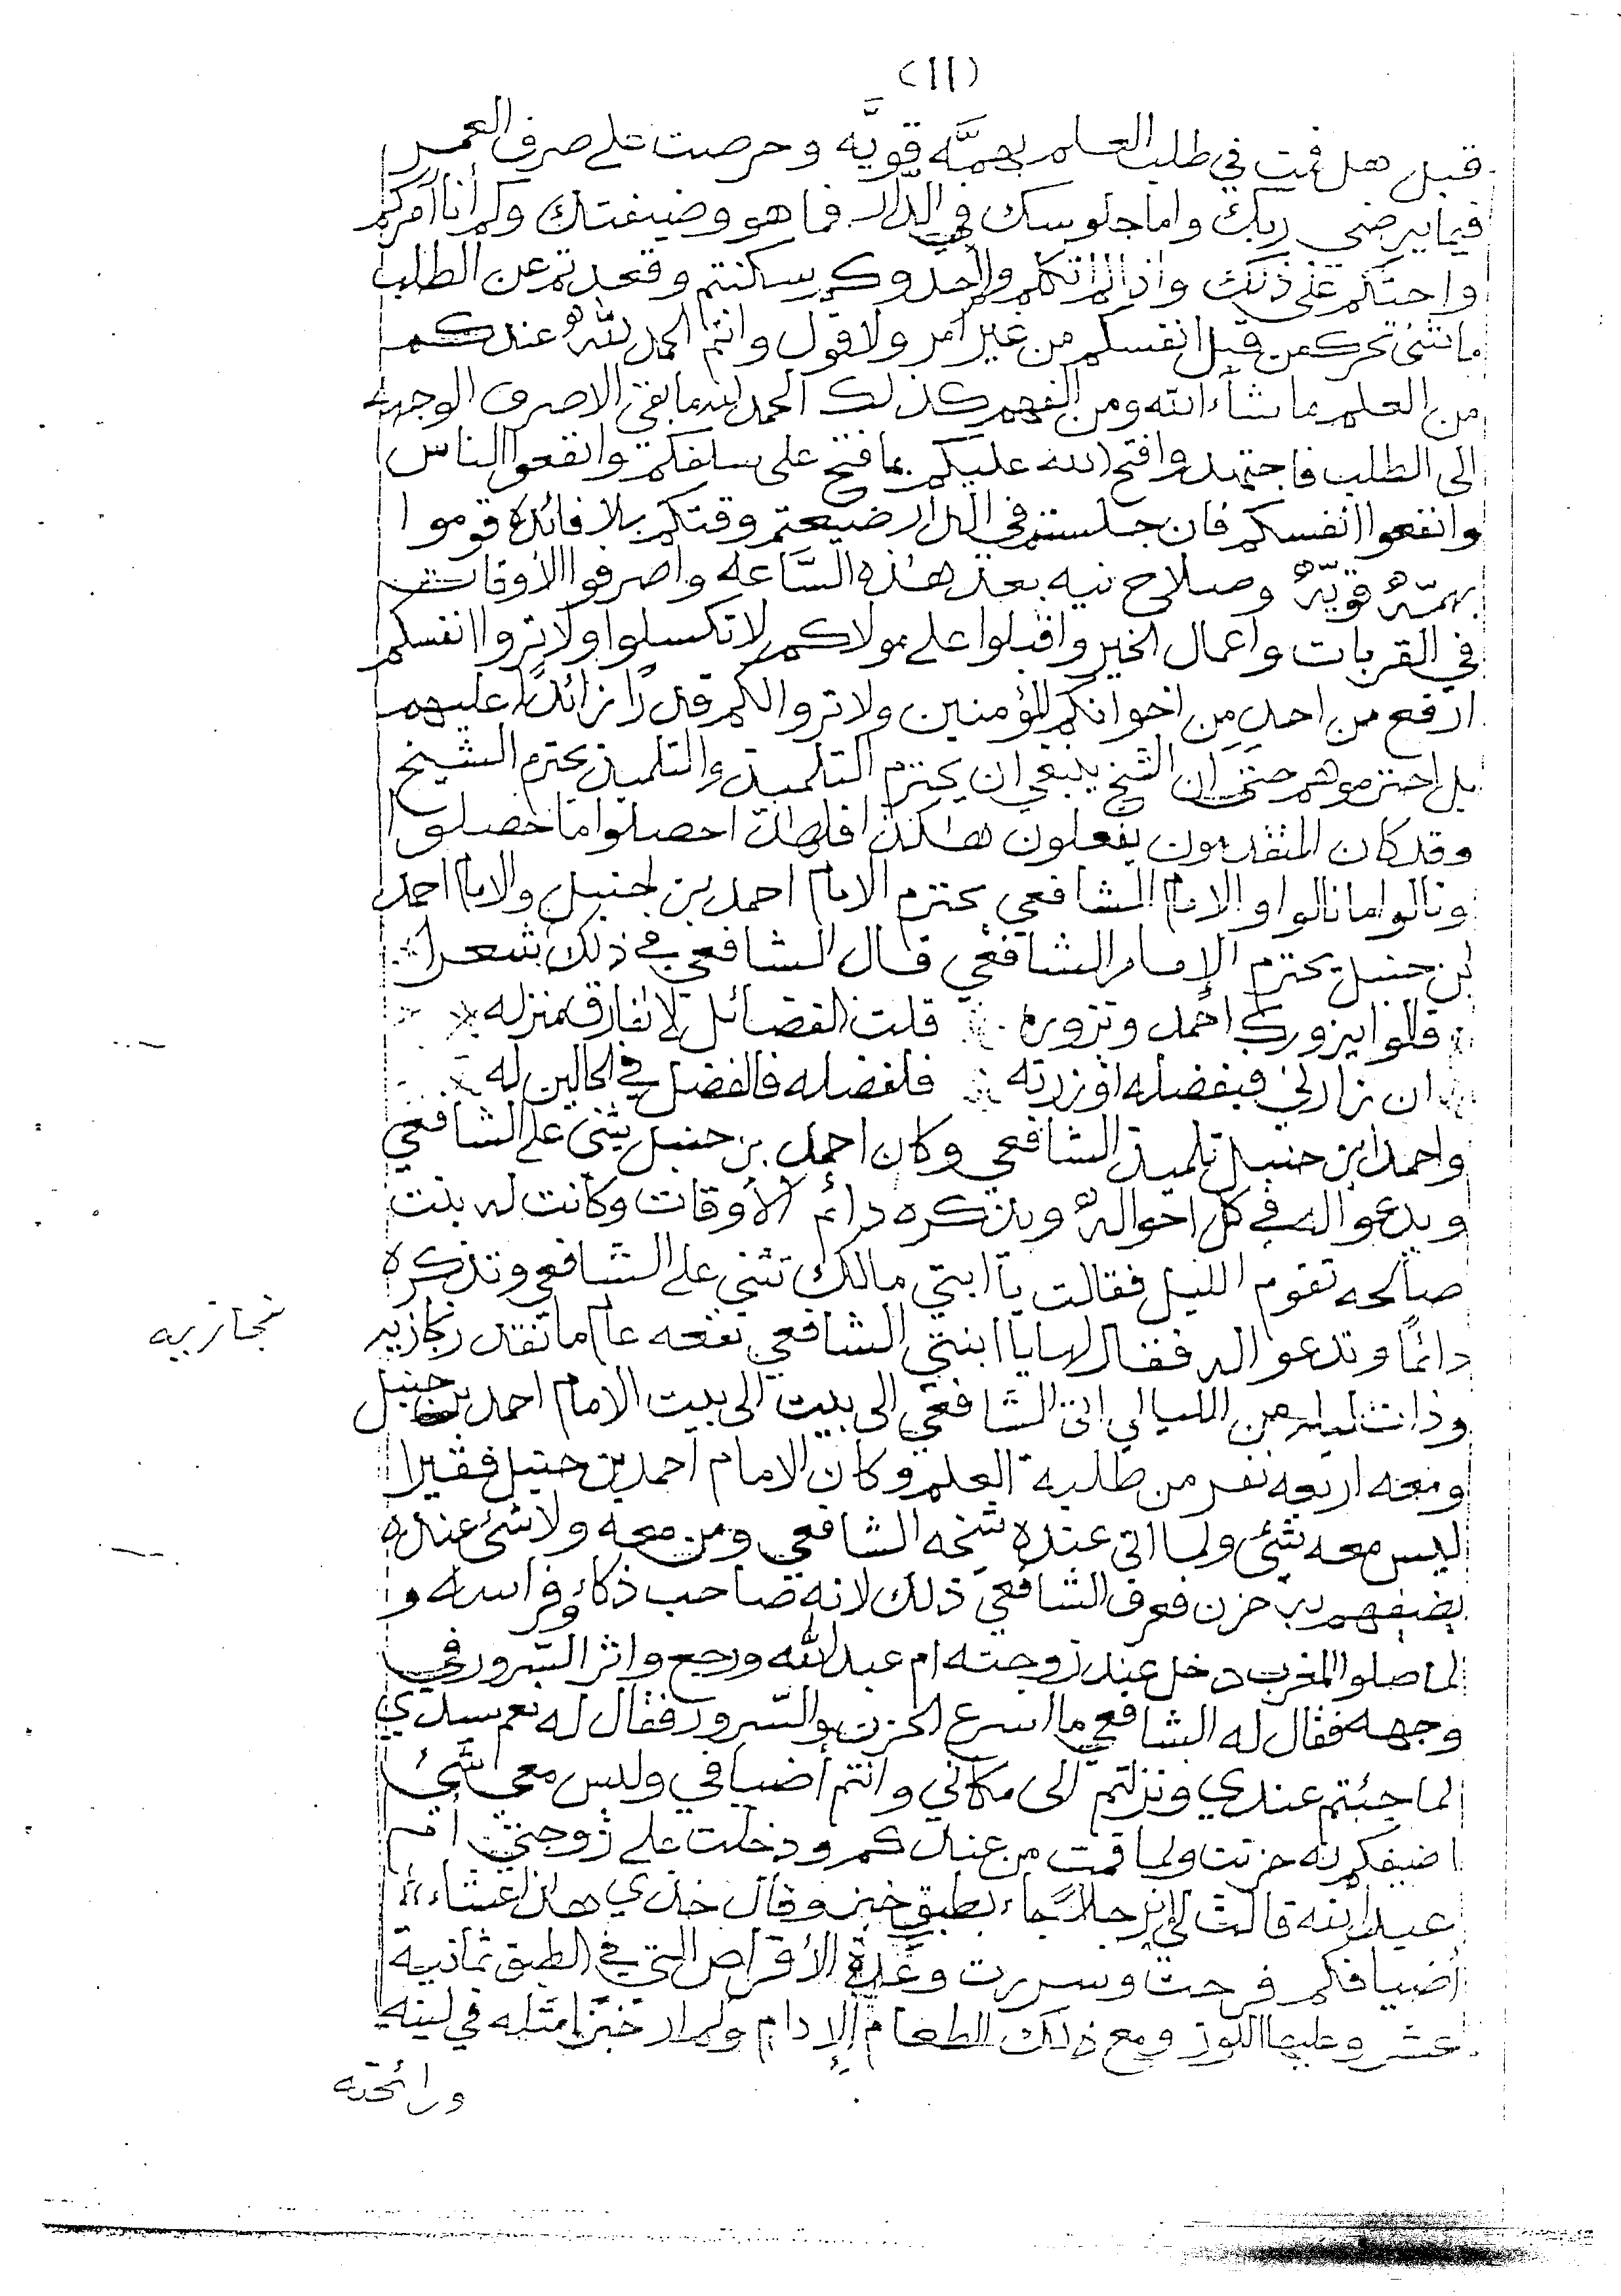 (١١)
قبل هل قمت في طلب العلم بهمَّه قويَّه وحرصت على صرف العمر
فيما يرضي ربك واما جلوسك في الدار فما هو وضيفتك وكم أنا آمركم
واحثكم على ذلك واذا لم اتكلم واحدوكم سكنتم وقعدتم عن الطلب
ما شئ تحرك من قبل انفسكم من غير امر ولا قول وانتم الحمد لله عندكم
من العلم ما شآء الله ومن الفهم كذلك الحمد لله ما بقي الا صرف الوجهه
الى الطلب فاجتهدوا فتح الله عليكم بما فتح على سلفكم وانفعوا الناس
وانفعوا انفسكم فان جلستم في الدار ضيعتم وقتكم بلا فائدة قوموا
بهمّهْ قويّهْ وصلاح نيه بعد هذه السَّاعه واصرفوا الأوقات
في القربات واعمال الخير واقبلوا على مولاكم لا تكسلوا ولا تروا انفسكم
ارفع من احدٍ من اخوانكم المؤمنين ولا تروا لكم قدرًا زائدًا عليهم
بل احترموهم حتى ان الشيخ ينبغي ان يحترم التلميذ والتلميذ يحترم الشيخ
وقد كان المتقدمون يفعلون هاكذا فلهاذا حصلوا ما حصلوا
ونالوا ما نالوا والامام الشافعي يحترم الامام احمد بن حنبل والامام احمد
ابن حنبل يحترم الإمام الشافعي قال الشافعي في ذلك شعرا
قالوا يزورك احمد وتزوره قلت الفضائل لا تفارق منزله
ان زارني فبفضله او زرته فلفضله فالفضل في الحالين له
واحمد ابن حنبل تلميذ الشافعي وكان احمد بن حنبل يثني على الشافعي
ويدعوا له في كل احواله ويذكره دائم الأوقات وكانت له بنت
صالحه تقوم الليل فقالت يآ ابتي مالك تثني على الشافعي وتذكره
دائمًا وتدعو اله فقال لها يا ابنتي الشافعي نفعه عام ما نقدر نجازيه
نجازيه
وذات ليله من الليالي اتى الشافعي الى بيت الى بيت الامام احمد بن حنبل
ومعه اربعه نفر من طلبة العلم وكان الامام احمد بن حنبل فقيرا
ليس معه شئ ولما اتى عنده شيخه الشافعي ومن معه ولا شئ عنده
يضيفهم به حزن فعرف الشافعي ذلك لانه صاحب ذكاء وفراسه و
لما صلوا المغرب دخل عند زوجته ام عبد الله ورجع واثر السّرور في
وجهه فقال له الشافعي ما اسرع الحزن والسّرور فقال له نعم سيدي
لما جئتم عندي ونزلتم الى مكاني وانتم أضيافي وليس معي شئ
اضيفكم به حزنت ولما قمت من عندكم ودخلت على زوجتي ام
عبد الله قالت لي ان رجلاً جاء بطبق خبز وقال خذي هاذا عشاء
أضيافكم فرحت وسررت وعدة الأقراص التي في الطبق ثمانية
عشر وعليها اللوز ومع ذلك الطعام الإدام ولم ار خبزا مثله في لينه
ورائحته